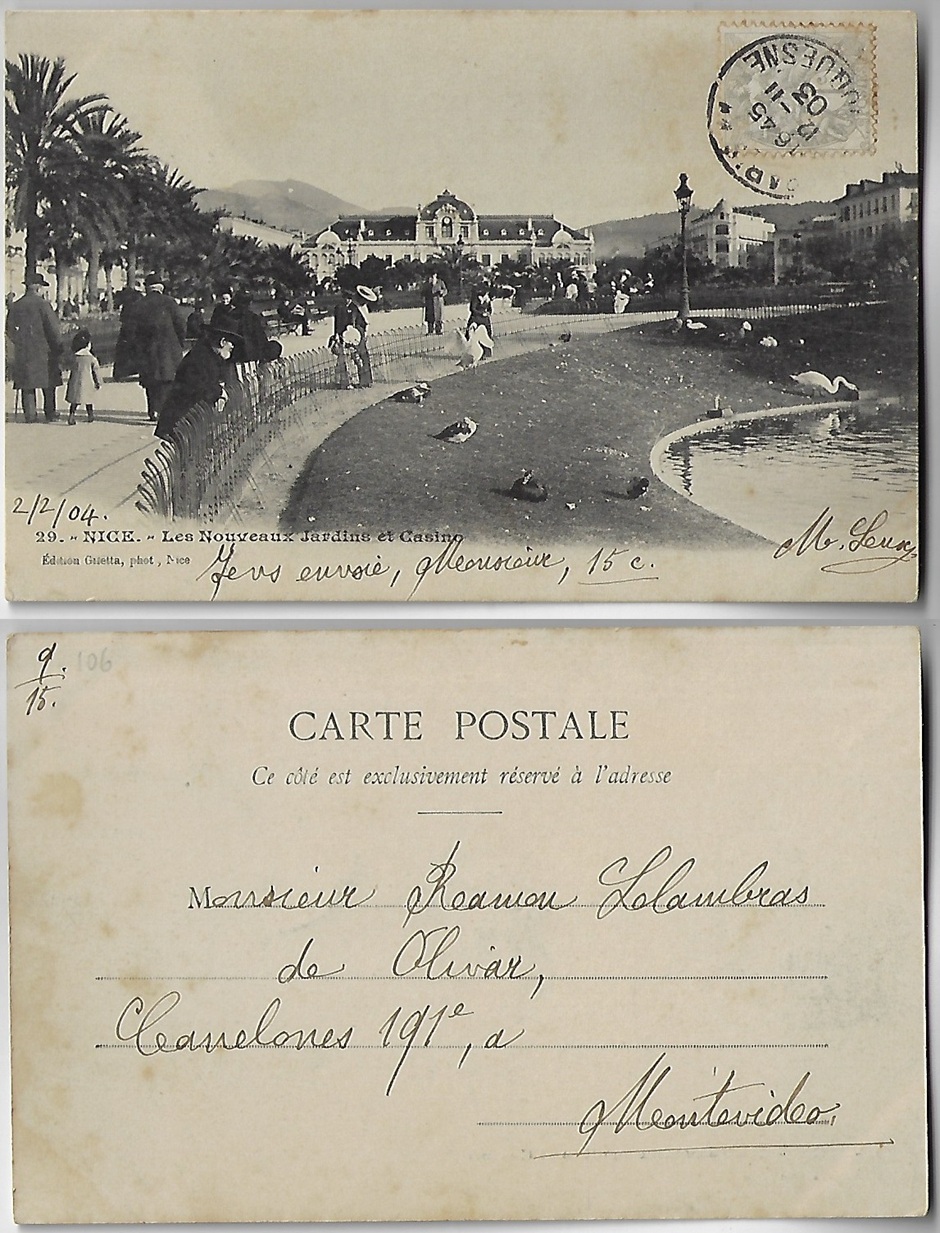 PARIS DUQUESNE
16 45
12 - 11
03
2/2/04.
29. - NICE. - Les Nouveaux Jardins et Casino
M. Leux
Édition Giletta, phot, Nice
Jevs envoié, Meonsieur, 15 c.
9.
15.
106
CARTE POSTALE
Ce côté est exclusivement réservé à l'adresse
Monsieur Reamon Lolambras
de Olivar,
Canelones 191e, a
Montevideo,